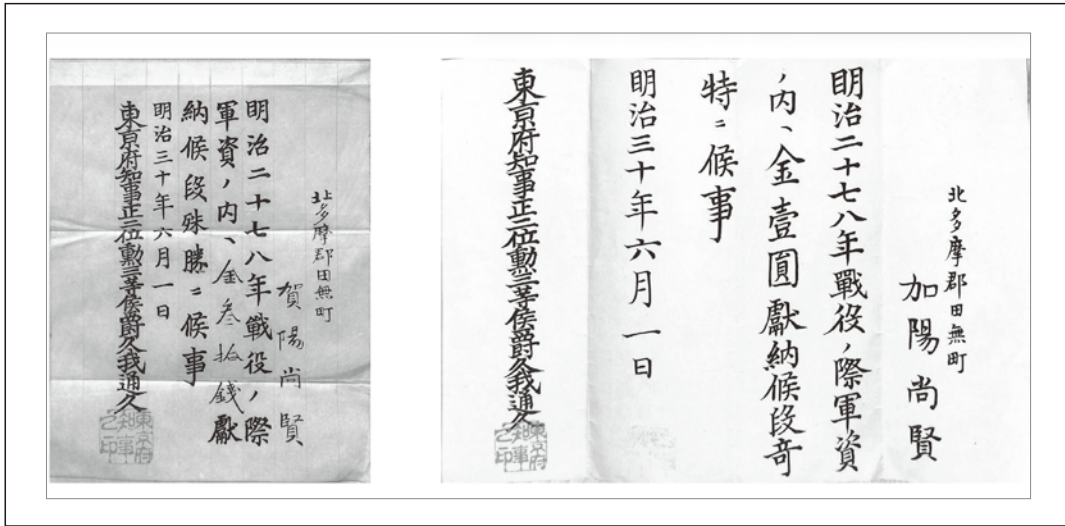 北多摩郡田無町
加陽尚賢
明治二十七八年戰役ノ際軍資
ノ内ヘ金壹圓獻納候段奇
特ニ候事
明治三十年六月一日
東京府知事正三位勳三等侯爵久我通久
東京府
知事
之印
北多摩郡田無町
賀陽尚賢
明治二十七八年戰役ノ際
軍資ノ内ヘ金叁拾錢獻
納候段殊勝ニ候事
明治三十年六月一日
東京府知事正三位勳三等侯爵久我通久
東京府
知事
之印